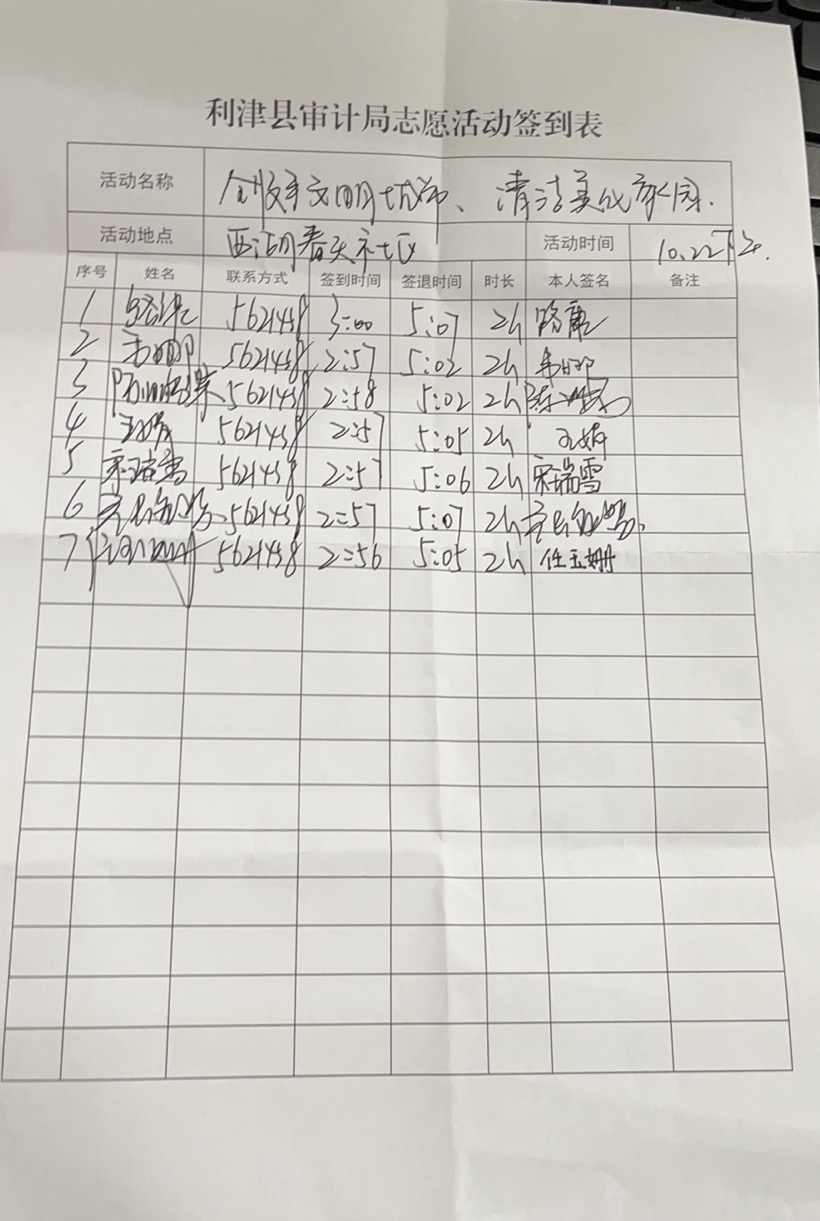 利津县审计局志愿活动签到表
活动名称 文明城市、清洁美化家园.
活动地点 西湖春天社区 活动时间 10.22下午.
序号 姓名 联系方式 签到时间 签退时间 时长 本人签名 备注
1 5621438 3:00 5:07 2h 路康
2 5621438 2:57 5:02 2h
3 5621438 2:58 5:02 2h
4 5621438 2:57 5:05 2h 王娟
5 宋瑞雪 5621438 2:57 5:06 2h 宋瑞雪
6 5621438 2:57 5:07 2h
7 任玉姗 5621438 2:56 5:05 2h 任玉姗